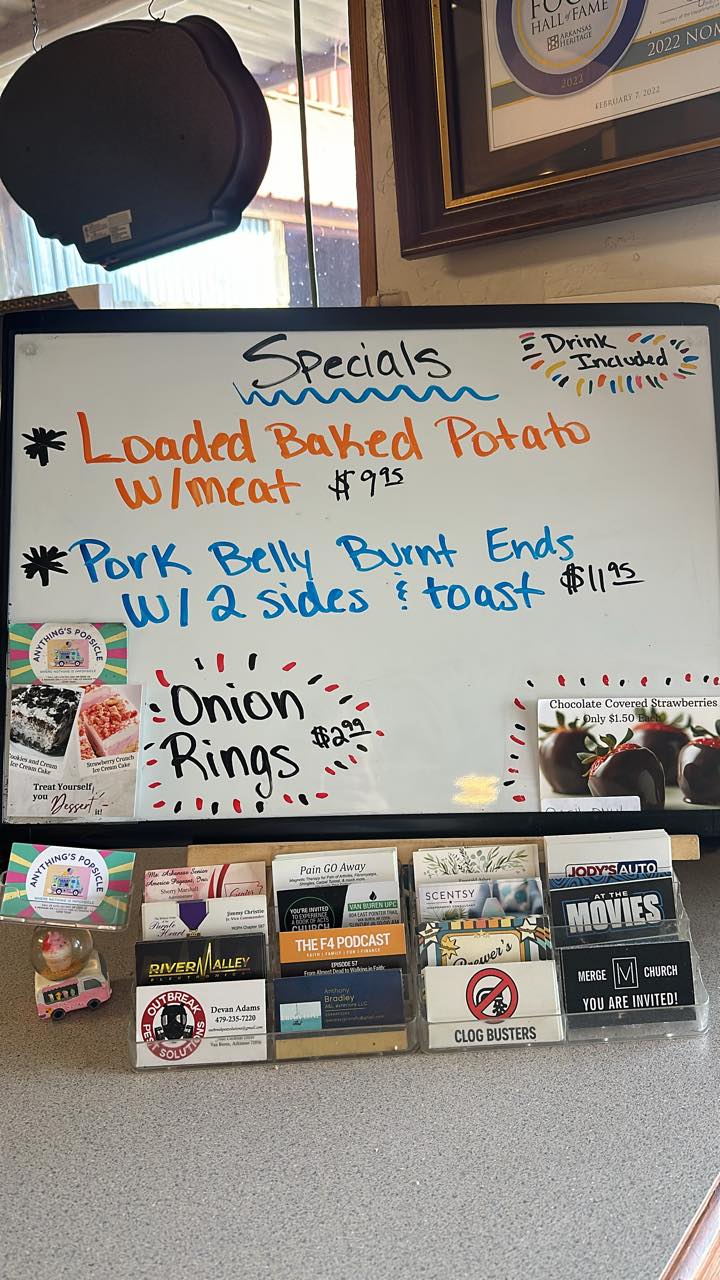 FOO
HALL of FAME
ARKANSAS
HERITAGE
2022
2022 NOM
FEBRUARY 7, 2022
Specials
Drink
Included
* Loaded Baked Potato
w/meat $9.95
* Pork Belly Burnt Ends
w/ 2 sides & toast $11.95
Onion
Rings $2.99
ANYTHING'S POPSICLE
WHERE NOTHING IS IMPOPSICLE
Cookies and Cream
Ice Cream Cake
Strawberry Crunch
Ice Cream Cake
Treat Yourself
you Dessert it!
Chocolate Covered Strawberries
Only $1.50 Each
ANYTHING'S POPSICLE
Ms. Arkansas Senior
America Pageant, Inc.
Sherry Marshall
Pain GO Away
SCENTSY
JODY'S AUTO
Purple
Heart
Jimmy Christie
YOU'RE INVITED
TO EXPERIENCE
A BOOK OF ACTS
VAN BUREN UPC
AT THE
MOVIES
RIVER VALLEY
THE F4 PODCAST
FAITH / FAMILY / FUN / FINANCE
EPISODE 57
From Almost Dead to Walking in Faith:
Brewer's
OUTBREAK
PEST SOLUTIONS
Devan Adams
479-235-7220
Van Buren, Arkansas
Anthony
Bradley
CLOG BUSTERS
MERGE M CHURCH
YOU ARE INVITED!